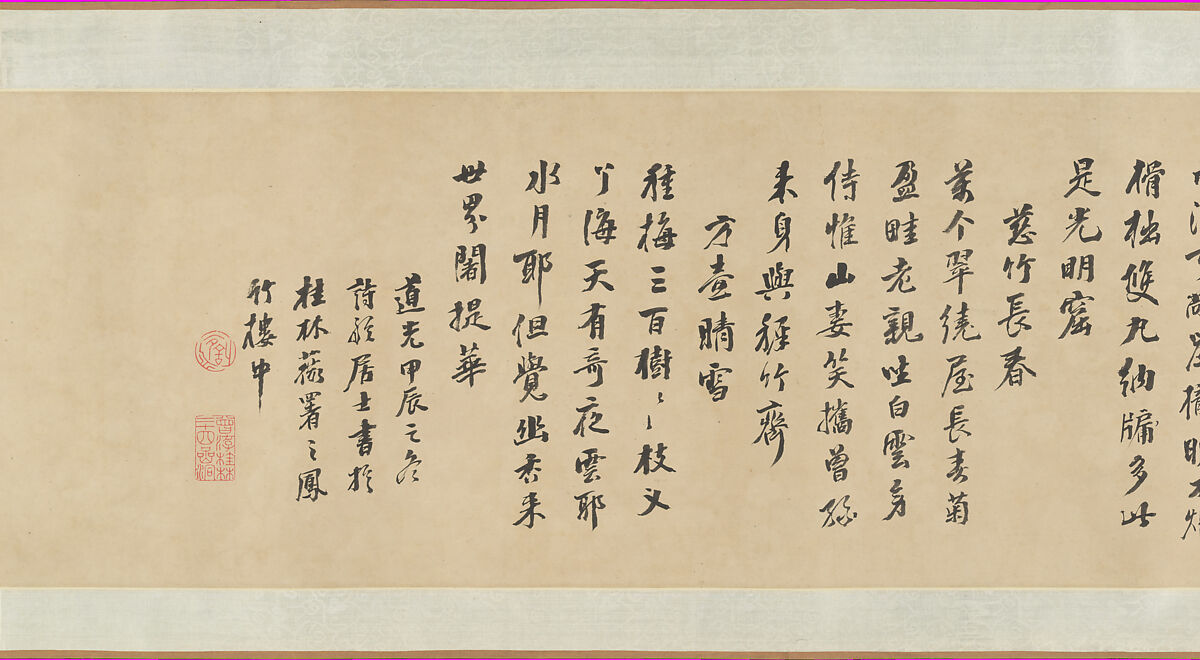 榾柮雙丸納牖多此
是光明窟
慈竹長春
萬个翠繞屋長春菊
盈畦老親坐白雲身
侍惟山妻笑攜曾孫
來身與種竹齊
方壺晴雪
種梅三百樹〻枝义
丫海天有奇夜雲耶
水月耶但覺幽香來
世界闍提華
道光甲辰之冬
詩舲居士書於
桂林薇署之鳳
竹樓中